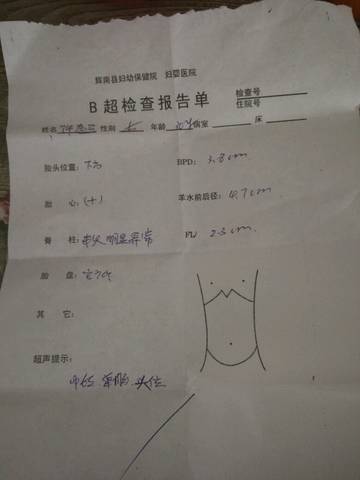 辉南县妇幼保健院 妇婴医院
B 超检查报告单
检查号
住院号
姓名 性别 女 年龄 病室 床
胎头位置: 下方 BPD: 5.8cm
胎 心: (+) 羊水前后径: 4.7cm
脊 柱: 未见明显异常 FL: 2.3cm
胎 盘:
其 它:
超声提示:
中妊 单胎 头位